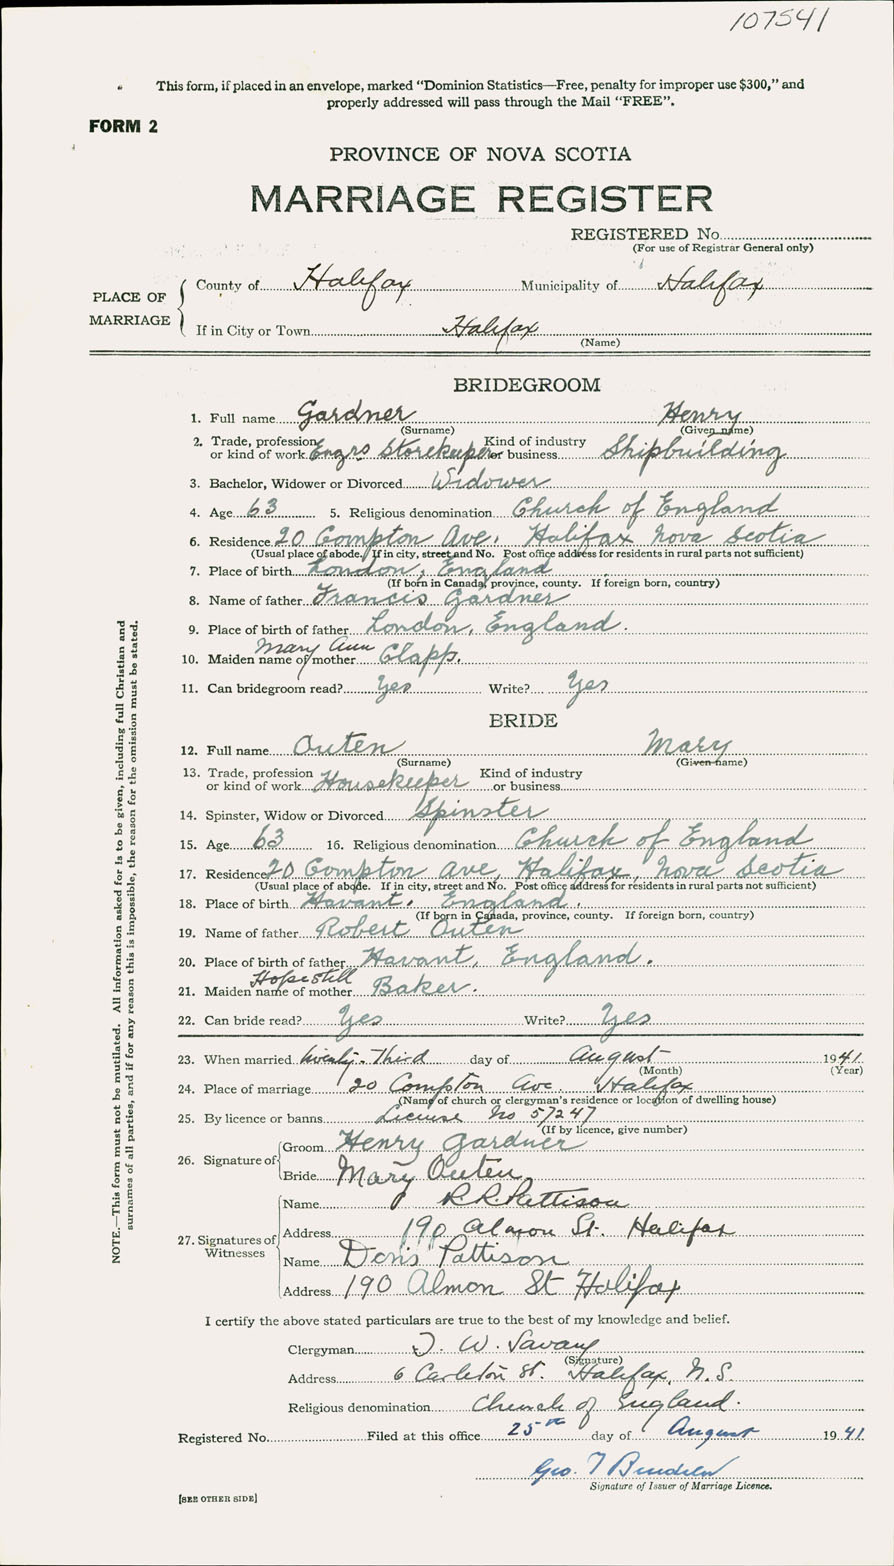 107541
This form, if placed in an envelope, marked "Dominion Statistics—Free, penalty for improper use $300," and
properly addressed will pass through the Mail "FREE".
FORM 2
PROVINCE OF NOVA SCOTIA
MARRIAGE REGISTER
REGISTERED No.
(For use of Registrar General only)
PLACE OF MARRIAGE
County of Halifax Municipality of Halifax
If in City or Town Halifax
(Name)
BRIDEGROOM
1. Full name Gardner Henry
(Surname) (Given name)
2. Trade, profession or kind of work Engrs Storekeeper Kind of industry or business Shipbuilding
3. Bachelor, Widower or Divorced Widower
4. Age 63 5. Religious denomination Church of England
6. Residence 20 Compton Ave. Halifax Nova Scotia
(Usual place of abode. If in city, street and No. Post office address for residents in rural parts not sufficient)
7. Place of birth London, England
(If born in Canada, province, county. If foreign born, country)
8. Name of father Francis Gardner
9. Place of birth of father London, England.
10. Maiden name of mother Mary Ann Clapp.
11. Can bridegroom read? Yes Write? Yes
BRIDE
12. Full name Outen Mary
(Surname) (Given name)
13. Trade, profession or kind of work Housekeeper Kind of industry or business
14. Spinster, Widow or Divorced Spinster
15. Age 63 16. Religious denomination Church of England
17. Residence 20 Compton Ave, Halifax, Nova Scotia
(Usual place of abode. If in city, street and No. Post office address for residents in rural parts not sufficient)
18. Place of birth Havant. England.
(If born in Canada, province, county. If foreign born, country)
19. Name of father Robert Outen
20. Place of birth of father Havant, England.
21. Maiden name of mother Hopestill Baker.
22. Can bride read? Yes Write? Yes
23. When married twenty-Third day of August 1941
(Month) (Year)
24. Place of marriage 20 Compton Ave. Halifax
(Name of church or clergyman's residence or location of dwelling house)
25. By licence or banns License No 57247
(If by licence, give number)
26. Signature of Groom Henry Gardner
Bride Mary Outen
27. Signatures of Witnesses
Name R.R. Pattison
Address 190 Almon St. Halifax
Name Doris Pattison
Address 190 Almon St Halifax
I certify the above stated particulars are true to the best of my knowledge and belief.
Clergyman W. Savary
(Signature)
Address 6 Carleton St. Halifax, N.S.
Religious denomination Church of England.
Registered No. Filed at this office 25th day of August 1941
Geo. T
Signature of Issuer of Marriage Licence.
[SEE OTHER SIDE]
NOTE.—This form must not be mutilated. All information asked for is to be given, including full Christian and
surnames of all parties, and if for any reason this is impossible, the reason for the omission must be stated.